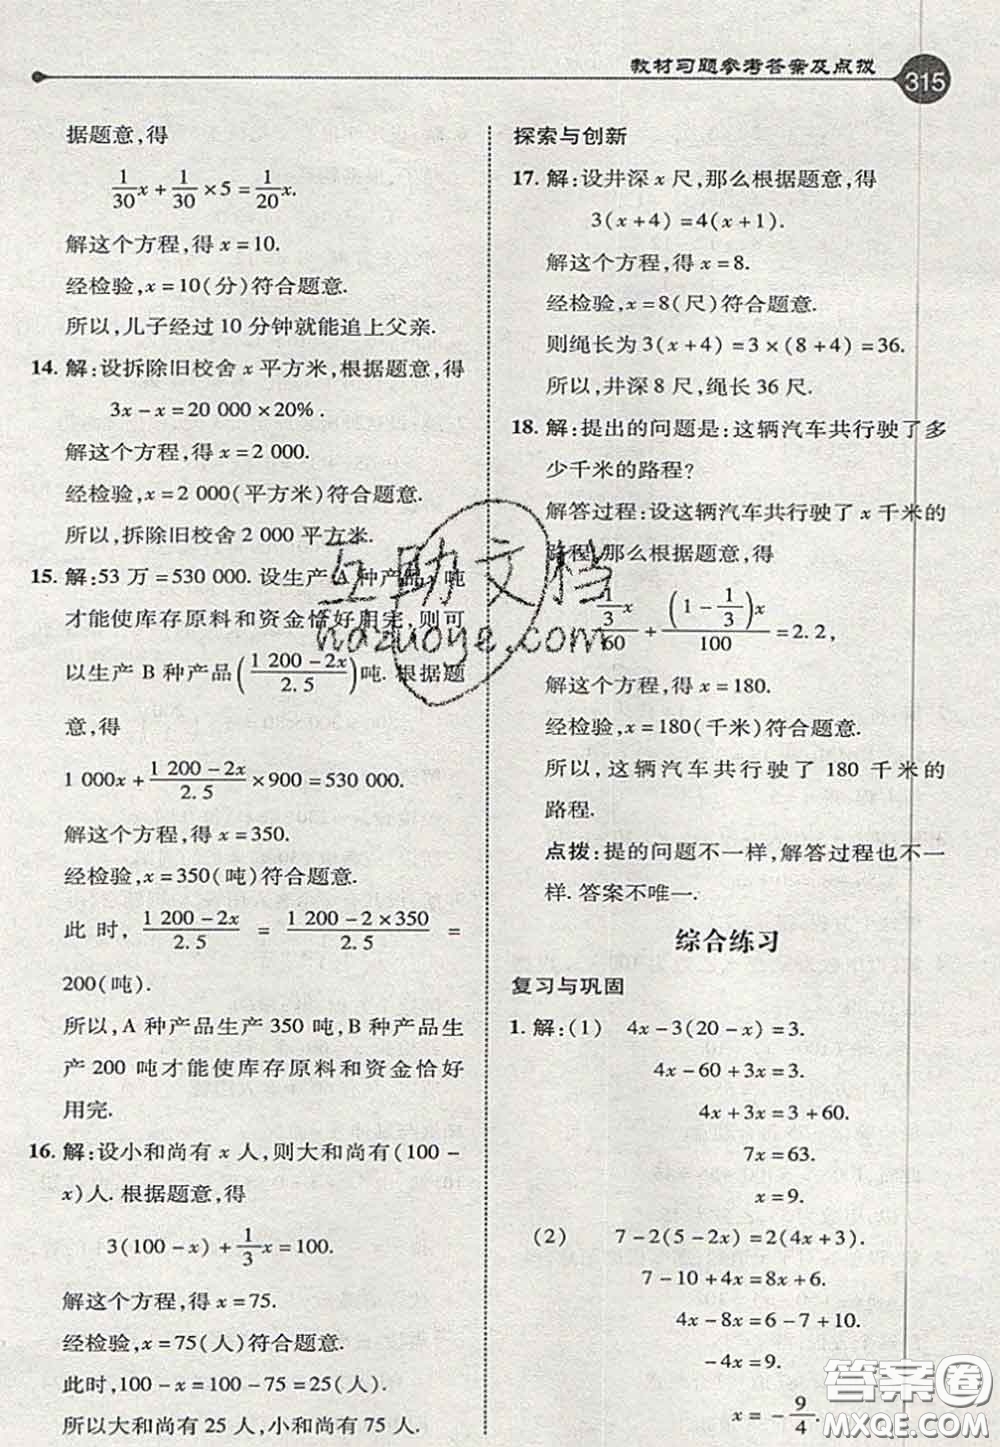 教材习题参考答案及点拨
315
据题意,得
1/30 x + 1/30 ×5 = 1/20 x.
解这个方程,得 x=10.
经检验,x=10(分)符合题意.
所以,儿子经过 10 分钟就能追上父亲.
14. 解:设拆除旧校舍 x 平方米,根据题意,得
3x-x=20 000×20%.
解这个方程,得 x=2 000.
经检验,x=2 000(平方米)符合题意.
所以,拆除旧校舍 2 000 平方米.
15. 解:53 万=530 000. 设生产 A 种产品 x 吨
才能使库存原料和资金恰好用完,则可
以生产 B 种产品((1 200-2x)/2.5)吨. 根据题
意,得
1 000x+(1 200-2x)/2.5×900=530 000.
解这个方程,得 x=350.
经检验,x=350(吨)符合题意.
此时,(1 200-2x)/2.5 = (1 200-2×350)/2.5 =
200(吨).
所以,A 种产品生产 350 吨,B 种产品生
产 200 吨才能使库存原料和资金恰好
用完.
16. 解:设小和尚有 x 人,则大和尚有(100-
x)人. 根据题意,得
3(100-x)+1/3 x=100.
解这个方程,得 x=75.
经检验,x=75(人)符合题意.
此时,100-x=100-75=25(人).
所以大和尚有 25 人,小和尚有 75 人.
探索与创新
17. 解:设井深 x 尺,那么根据题意,得
3(x+4)=4(x+1).
解这个方程,得 x=8.
经检验,x=8(尺)符合题意.
则绳长为 3(x+4)=3×(8+4)=36.
所以,井深 8 尺,绳长 36 尺.
18. 解:提出的问题是:这辆汽车共行驶了多
少千米的路程?
解答过程:设这辆汽车共行驶了 x 千米的
路程,那么根据题意,得
(1/3 x)/60 + ((1-1/3)x)/100 =2.2,
解这个方程,得 x=180.
经检验,x=180(千米)符合题意.
所以,这辆汽车共行驶了 180 千米的
路程.
点拨:提的问题不一样,解答过程也不一
样. 答案不唯一.
综合练习
复习与巩固
1. 解:(1) 4x-3(20-x)=3.
4x-60+3x=3.
4x+3x=3+60.
7x=63.
x=9.
(2) 7-2(5-2x)=2(4x+3).
7-10+4x=8x+6.
4x-8x=6-7+10.
-4x=9.
x=-9/4.
互助文档
hazuoye.com
答案圈
MXQE.COM